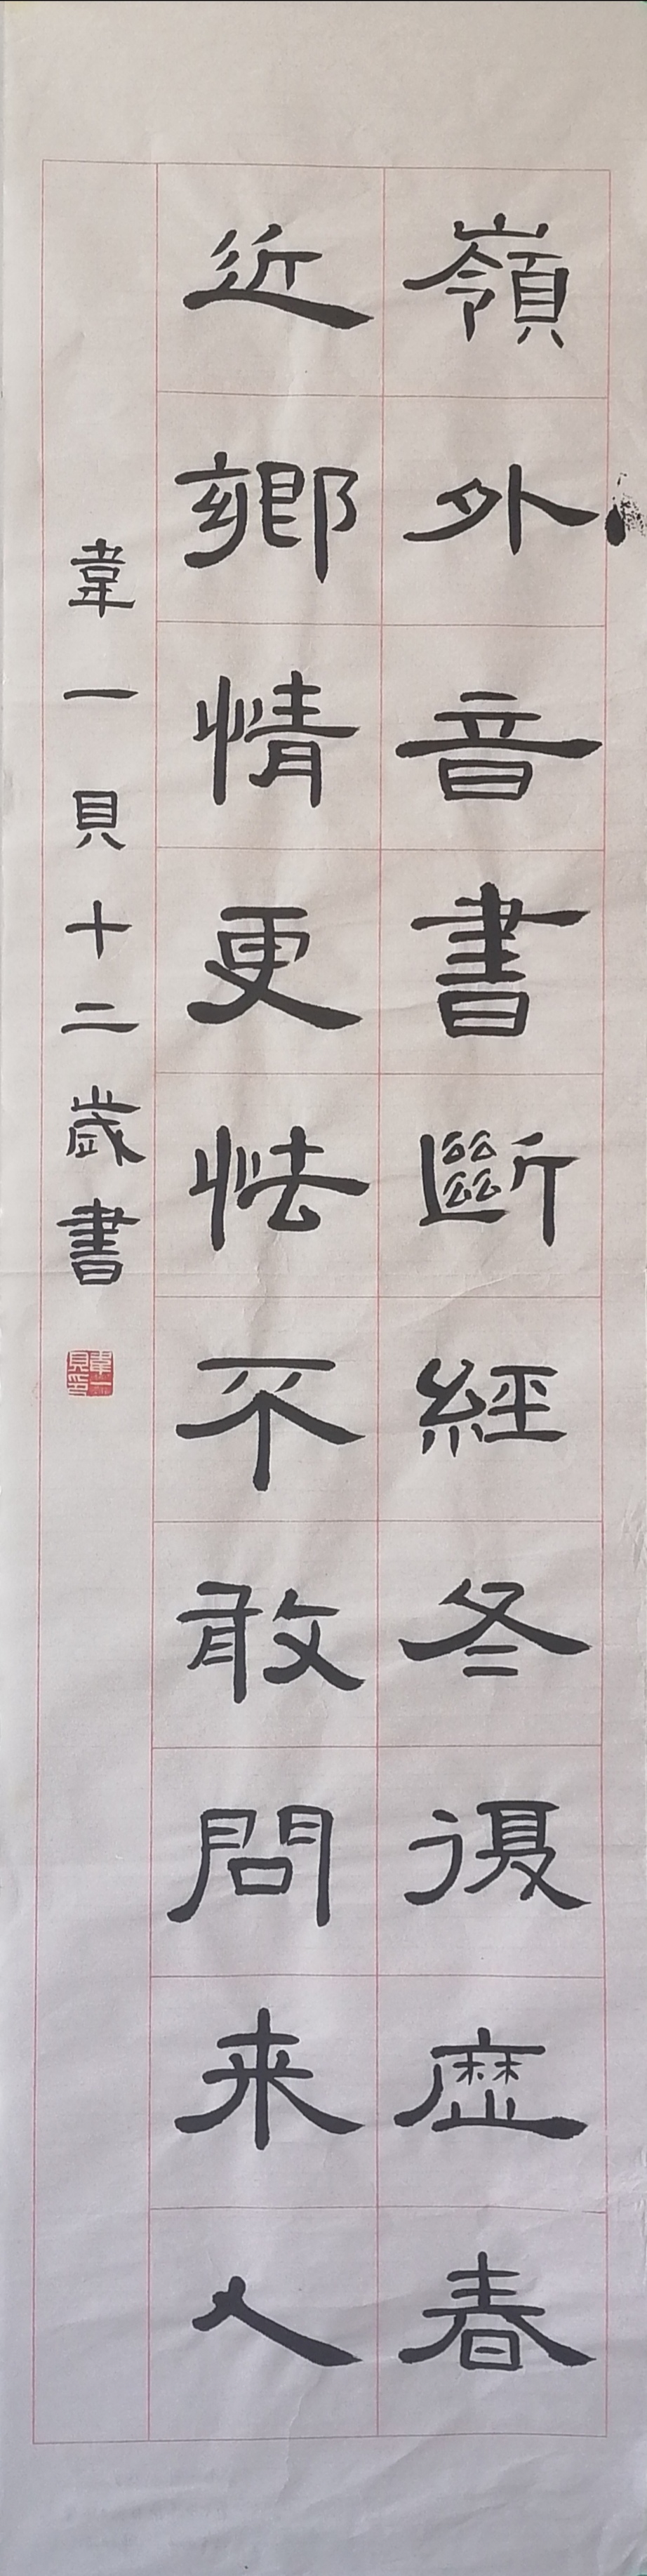 嶺外音書斷經冬復歷春
近鄉情更怯不敢問来人
韋一貝十二歲書
韋一貝印